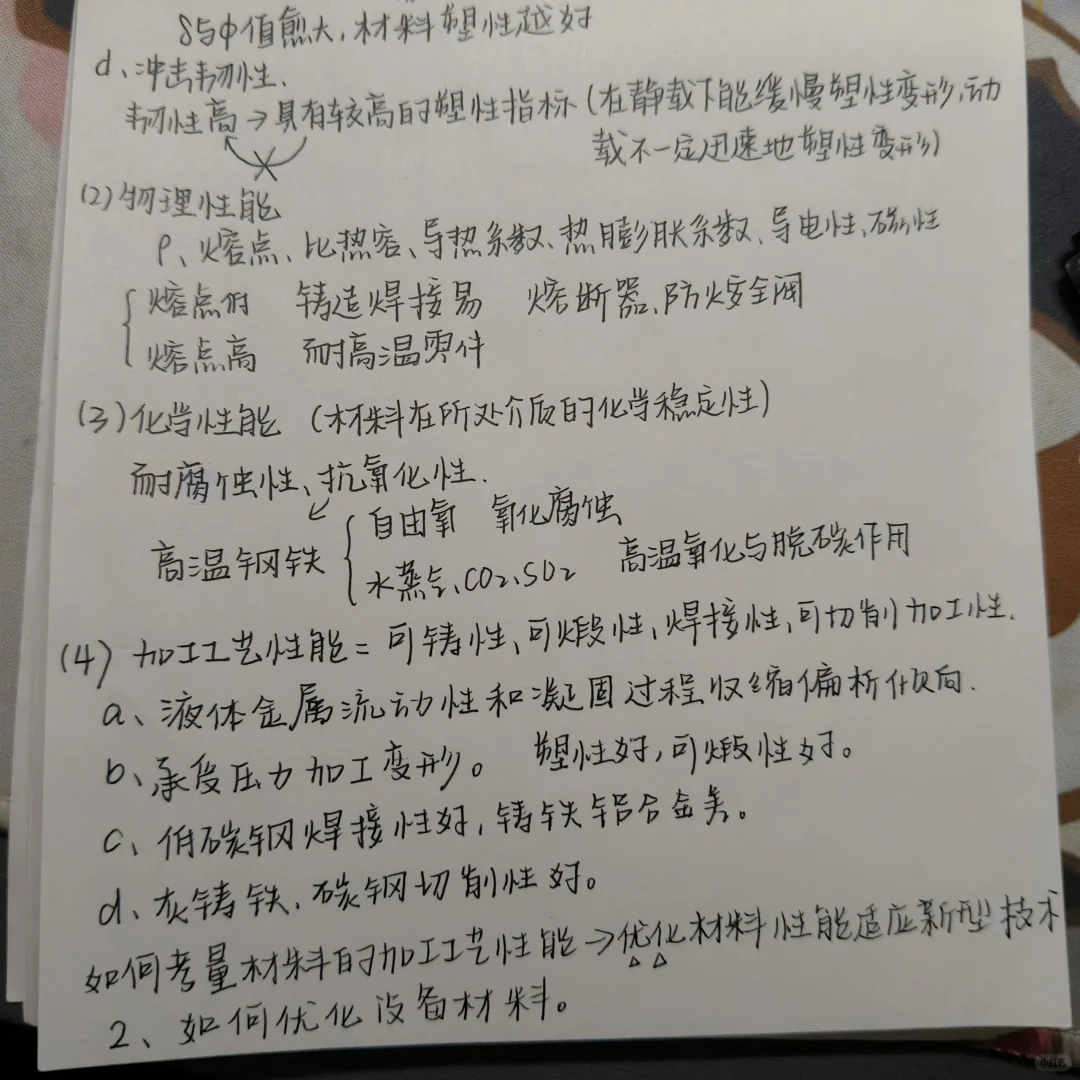 δ与Φ值愈大,材料塑性越好
d、冲击韧性.
韧性高→具有较高的塑性指标(在静载下能缓慢塑性变形,动
载不一定迅速地塑性变形)
(2)物理性能
ρ、熔点、比热容、导热系数、热膨胀系数、导电性、磁性
熔点低 铸造焊接易 熔断器、防火安全阀
熔点高 耐高温零件
(3)化学性能 (材料在所处介质的化学稳定性)
耐腐蚀性、抗氧化性.
高温钢铁 自由氧 氧化腐蚀
水蒸气、CO2、SO2 高温氧化与脱碳作用
(4)加工工艺性能=可铸性、可煅性,焊接性,可切削加工性.
a、液体金属流动性和凝固过程收缩偏析倾向.
b、承受压力加工变形。 塑性好,可煅性好。
c、低碳钢焊接性好,铸铁铝合金差。
d、灰铸铁、碳钢切削性好。
如何考量材料的加工工艺性能→优化材料性能适应新型技术
2、如何优化设备材料。